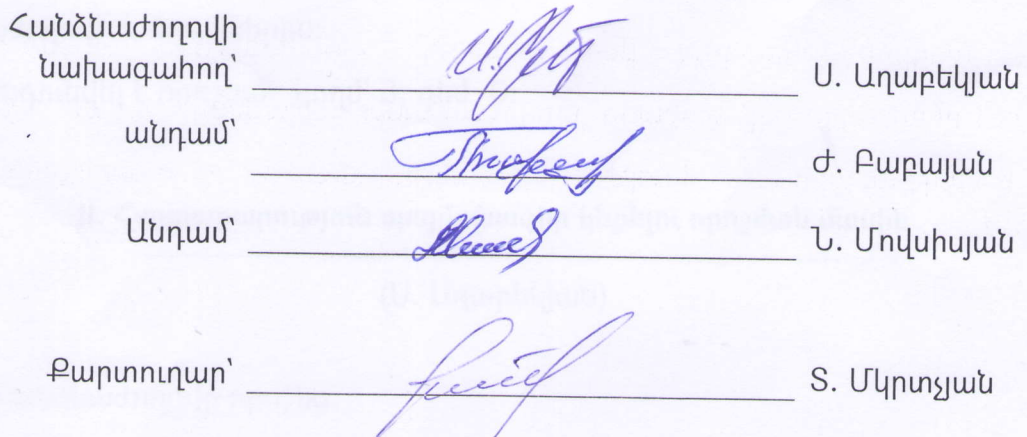 Հանձնաժողովի
նախագահող՝ Ս. Աղաբեկյան
անդամ՝ Ժ. Բաբայան
Անդամ՝ Ն. Մովսիսյան
Քարտուղար՝ Տ. Մկրտչյան